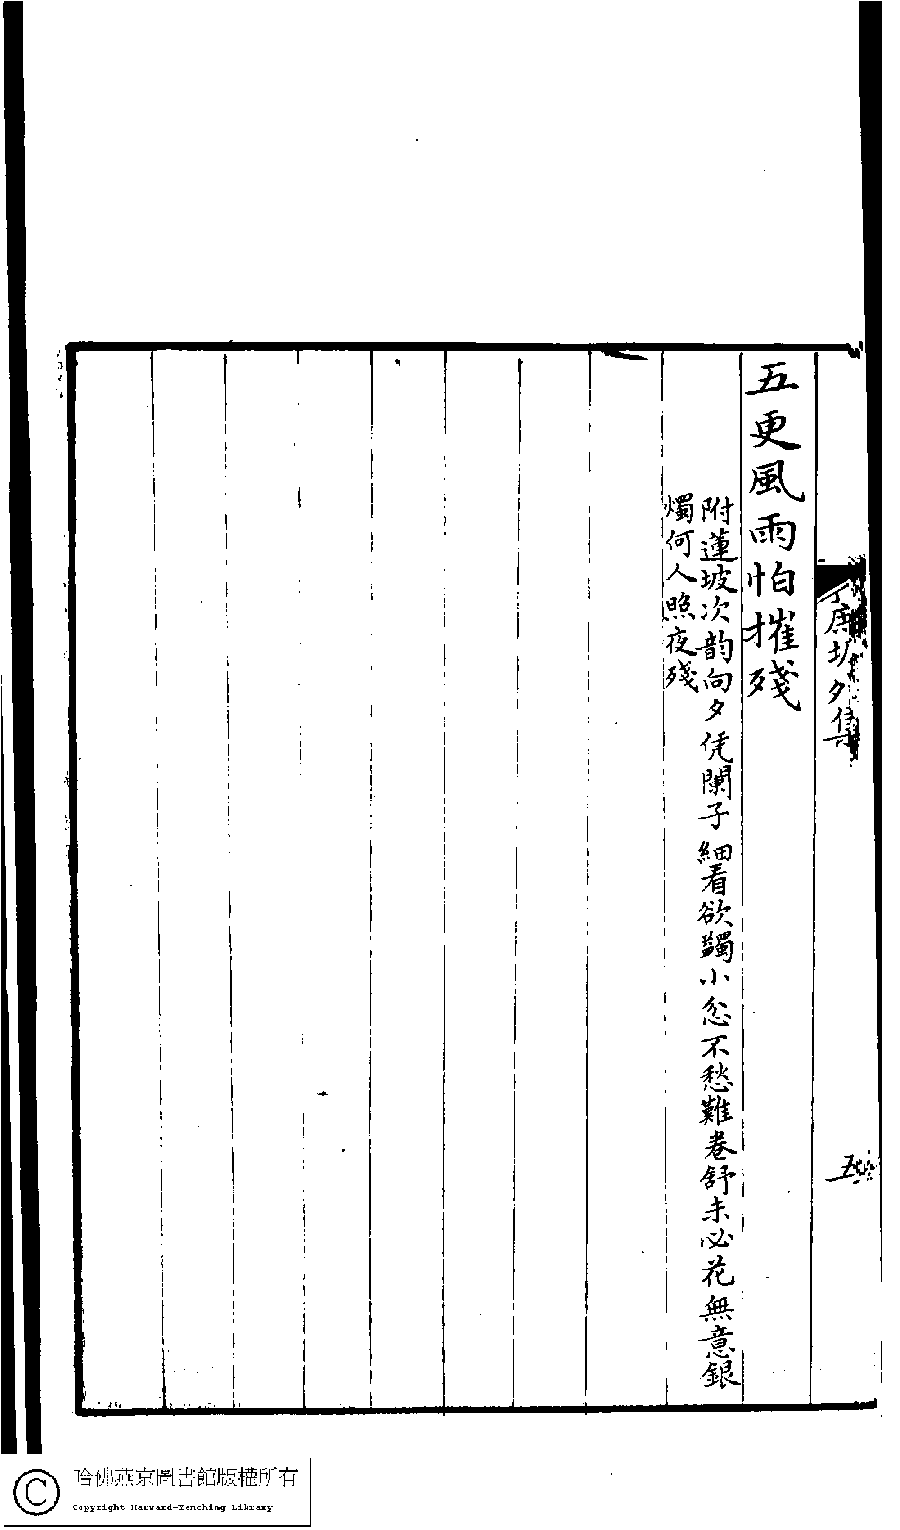 五更風雨怕摧殘
附蓮坡次韵向夕凭闌子細看欲蠲小忿不愁難卷舒未必花無意銀
燭何人照夜殘
夕集
五
哈佛燕京圖書館版權所有
Copyright Harvard-Yenching Library